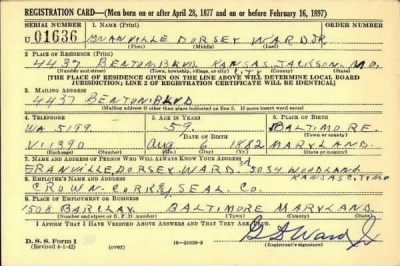 REGISTRATION CARD—(Men born on or after April 28, 1877 and on or before February 16, 1897)
SERIAL NUMBER 1. NAME (Print) ORDER NUMBER
U 01636 GRANVILLE DORSEY WARD JR.
(First) (Middle) (Last)
2. PLACE OF RESIDENCE (Print)
4437 BENTON BLVD KANSAS JACKSON MO.
CITY
(Number and street) (Town, township, village, or city) (County) (State)
[THE PLACE OF RESIDENCE GIVEN ON THE LINE ABOVE WILL DETERMINE LOCAL BOARD
JURISDICTION; LINE 2 OF REGISTRATION CERTIFICATE WILL BE IDENTICAL]
3. MAILING ADDRESS
4437 BENTON BLVD
[Mailing address if other than place indicated on line 2. If same insert word same]
4. TELEPHONE 5. AGE IN YEARS 6. PLACE OF BIRTH
WA 5199 59 BALTIMORE
DATE OF BIRTH (Town or county)
VI 1390 Aug 6 1882 MARYLAND
(Exchange) (Number) (Mo.) (Day) (Yr.) (State or country)
7. NAME AND ADDRESS OF PERSON WHO WILL ALWAYS KNOW YOUR ADDRESS
GRANVILLE DORSEY WARD 3D 3034 WOODLAND
KANSAS CITY MO
8. EMPLOYER'S NAME AND ADDRESS
CROWN CORK & SEAL CO.
9. PLACE OF EMPLOYMENT OR BUSINESS
1508 BARCLAY BALTIMORE MARYLAND
(Number and street or R. F. D. number) (Town) (County) (State)
I AFFIRM THAT I HAVE VERIFIED ABOVE ANSWERS AND THAT THEY ARE TRUE.
D. S. S. Form 1
(Revised 4-1-42) (over) G D Ward Jr
(Registrant's signature)